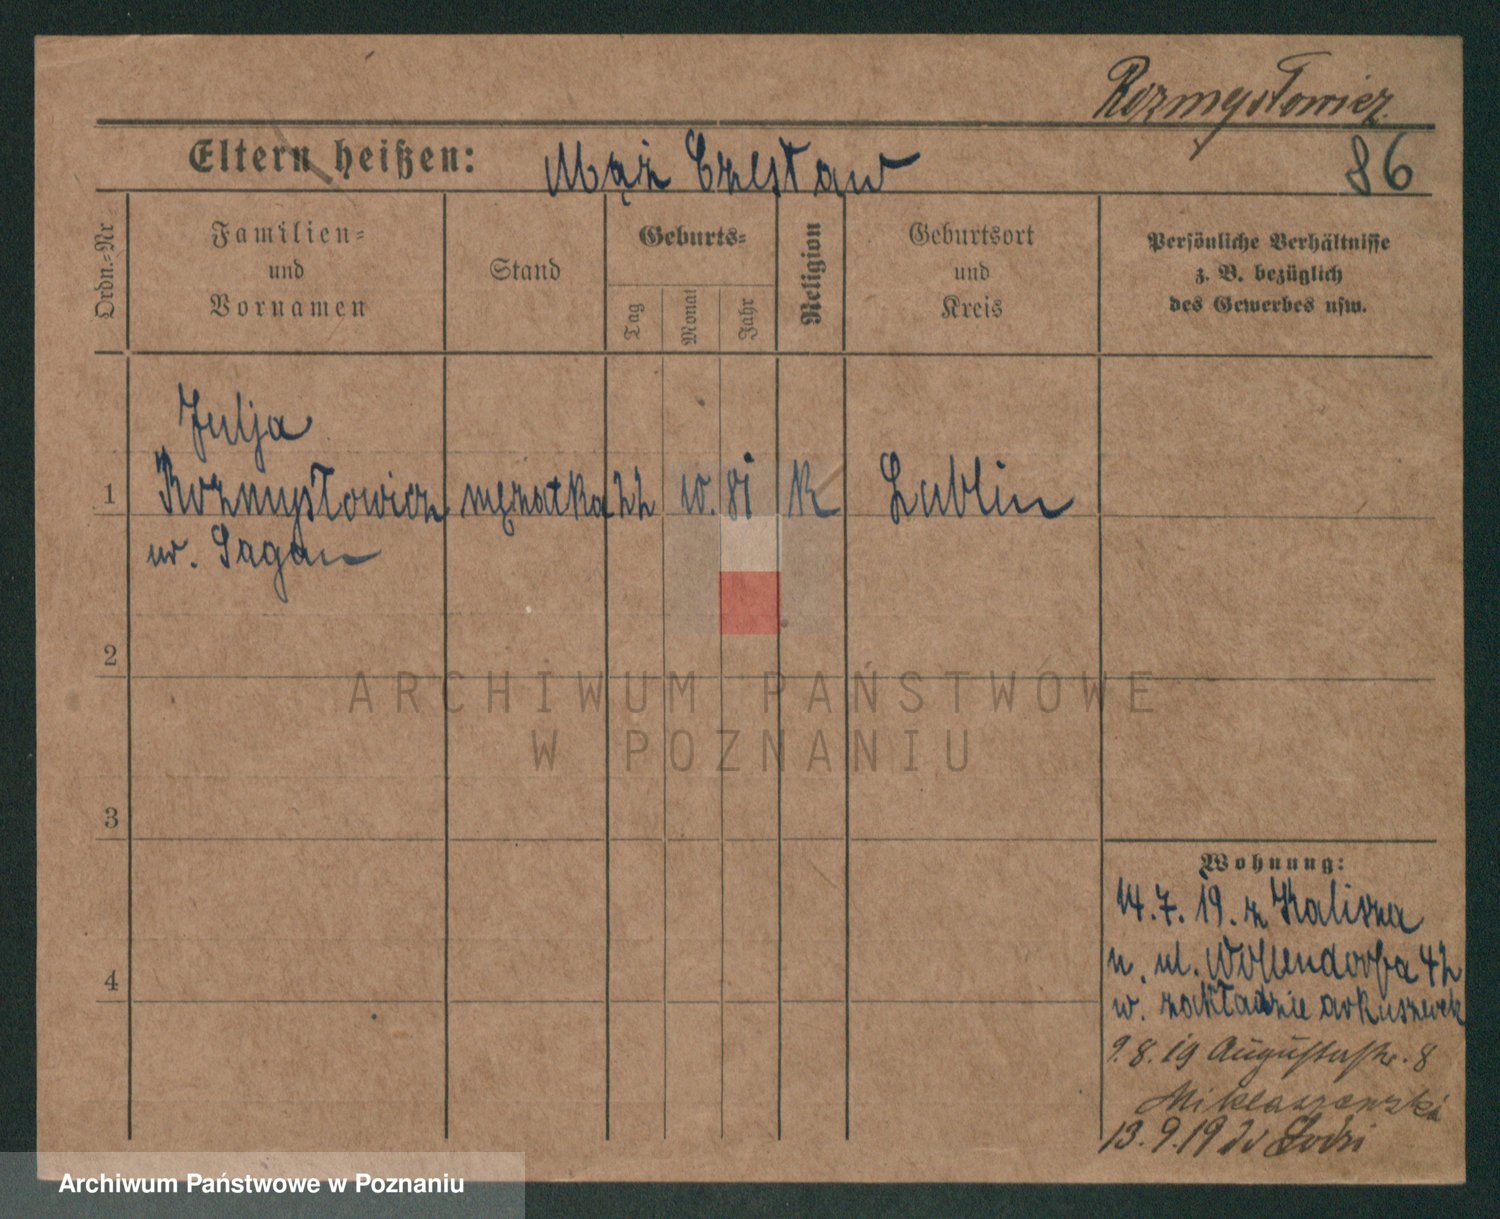 Rozmysłowicz
Eltern heißen: Mąż Czesław
86
Ordn.-Nr
Familien-
und
Vornamen
Stand
Geburts-
Tag
Monat
Jahr
Religion
Geburtsort
und
Kreis
Persönliche Verhältnisse
z. B. bezüglich
des Gewerbes usw.
Julja
1 Rozmysłowicz mężatka 22 10. 81 K Lublin
ur. Sagan
2
3
4
ARCHIWUM PAŃSTWOWE
W POZNANIU
Wohnung:
14.7.19. z Kalisza
ul. 42
w. zakładzie
9.8.19 Augustastr. 8
Miklaszewski
13.9.19 do Łodzi
Archiwum Państwowe w Poznaniu